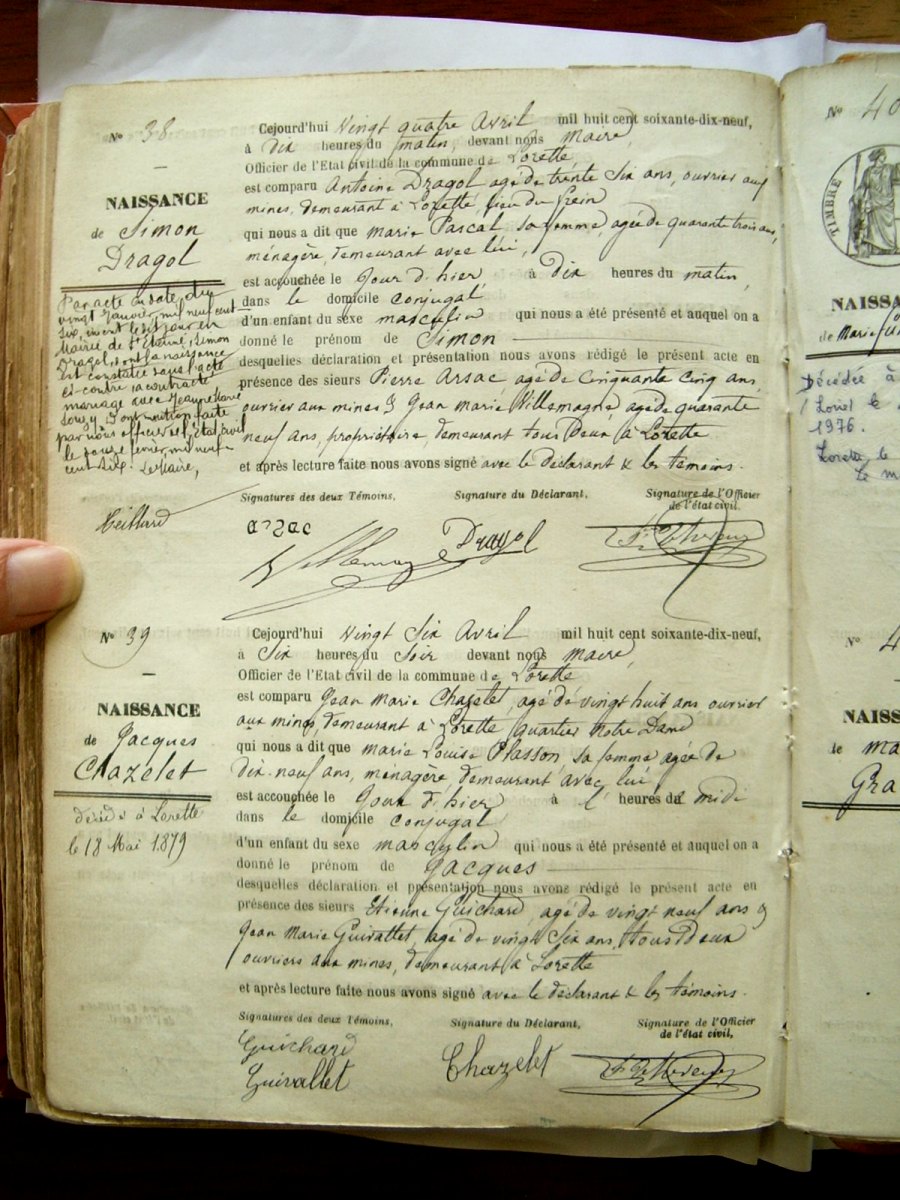 N° 38
NAISSANCE
de Simon
Dragol
Par acte en date du
vingt Janvier mil neuf cent
six, inscrit le dit jour en
Mairie de St Etienne, Simon
Dragol, dont la naissance
est constatée dans l'acte
ci-contre a contracté
mariage avec Jeanne Marie
Dont mention faite
par nous officier de l'Etat civil
le douze fevrier mil neuf
cent six. Le Maire,
Cejourd'hui Vingt quatre Avril mil huit cent soixante-dix-neuf,
à Dix heures du matin, devant nous Maire
Officier de l'Etat civil de la commune de Lorette,
est comparu Antoine Dragol agé de trente Six ans, ouvrier aux
mines, demeurant à Lorette, lieu du Grein
qui nous a dit que Marie Pascal sa femme, agée de quarante trois ans,
ménagère, demeurant avec lui,
est accouchée le Jour d'hier, à Dix heures du matin,
dans le domicile conjugal
d'un enfant du sexe masculin qui nous a été présenté et auquel on a
donné le prénom de Simon
desquelles déclaration et présentation nous avons rédigé le présent acte en
présence des sieurs Pierre Arsac agé de cinquante cinq ans,
ouvrier aux mines & Jean Marie Villemagne agé de quarante
neuf ans, propriétaire, demeurant tous Deux à Lorette
et après lecture faite nous avons signé avec le déclarant & les témoins.
Signatures des deux Témoins, Signature du Déclarant, Signature de l'Officier
de l'état civil.
arzac
Villemagne Dragol
N° 39
NAISSANCE
de Jacques
Chazelet
décédé à Lorette
le 18 Mai 1879
Cejourd'hui Vingt Six Avril mil huit cent soixante-dix-neuf,
à Six heures du Soir devant nous Maire,
Officier de l'Etat civil de la commune de Lorette
est comparu Jean Marie Chazelet, agé de vingt huit ans ouvrier
aux mines, demeurant à Lorette quartier Notre Dame
qui nous a dit que Marie Louise Plasson, sa femme agée de
dix-neuf ans, ménagère demeurant avec lui,
est accouchée le Jour d'hier à heures de midi
dans le domicile conjugal
d'un enfant du sexe masculin qui nous a été présenté et auquel on a
donné le prénom de Jacques
desquelles déclaration et présentation nous avons rédigé le présent acte en
présence des sieurs Etienne Guichard, agé de vingt neuf ans &
Jean Marie Guirallet, agé de vingt Six ans, tous Deux
ouvriers aux mines, demeurant à Lorette
et après lecture faite nous avons signé avec le déclarant & les témoins.
Signatures des deux Témoins, Signature du Déclarant, Signature de l'Officier
de l'état civil,
Guichard
Guirallet Chazelet
N° 40
TIMBRE
NAISSA
de Marie
Décédée à
Lorette le
1976.
Lorette le
Le m
N° 4
NAISS
de Ma
Gra